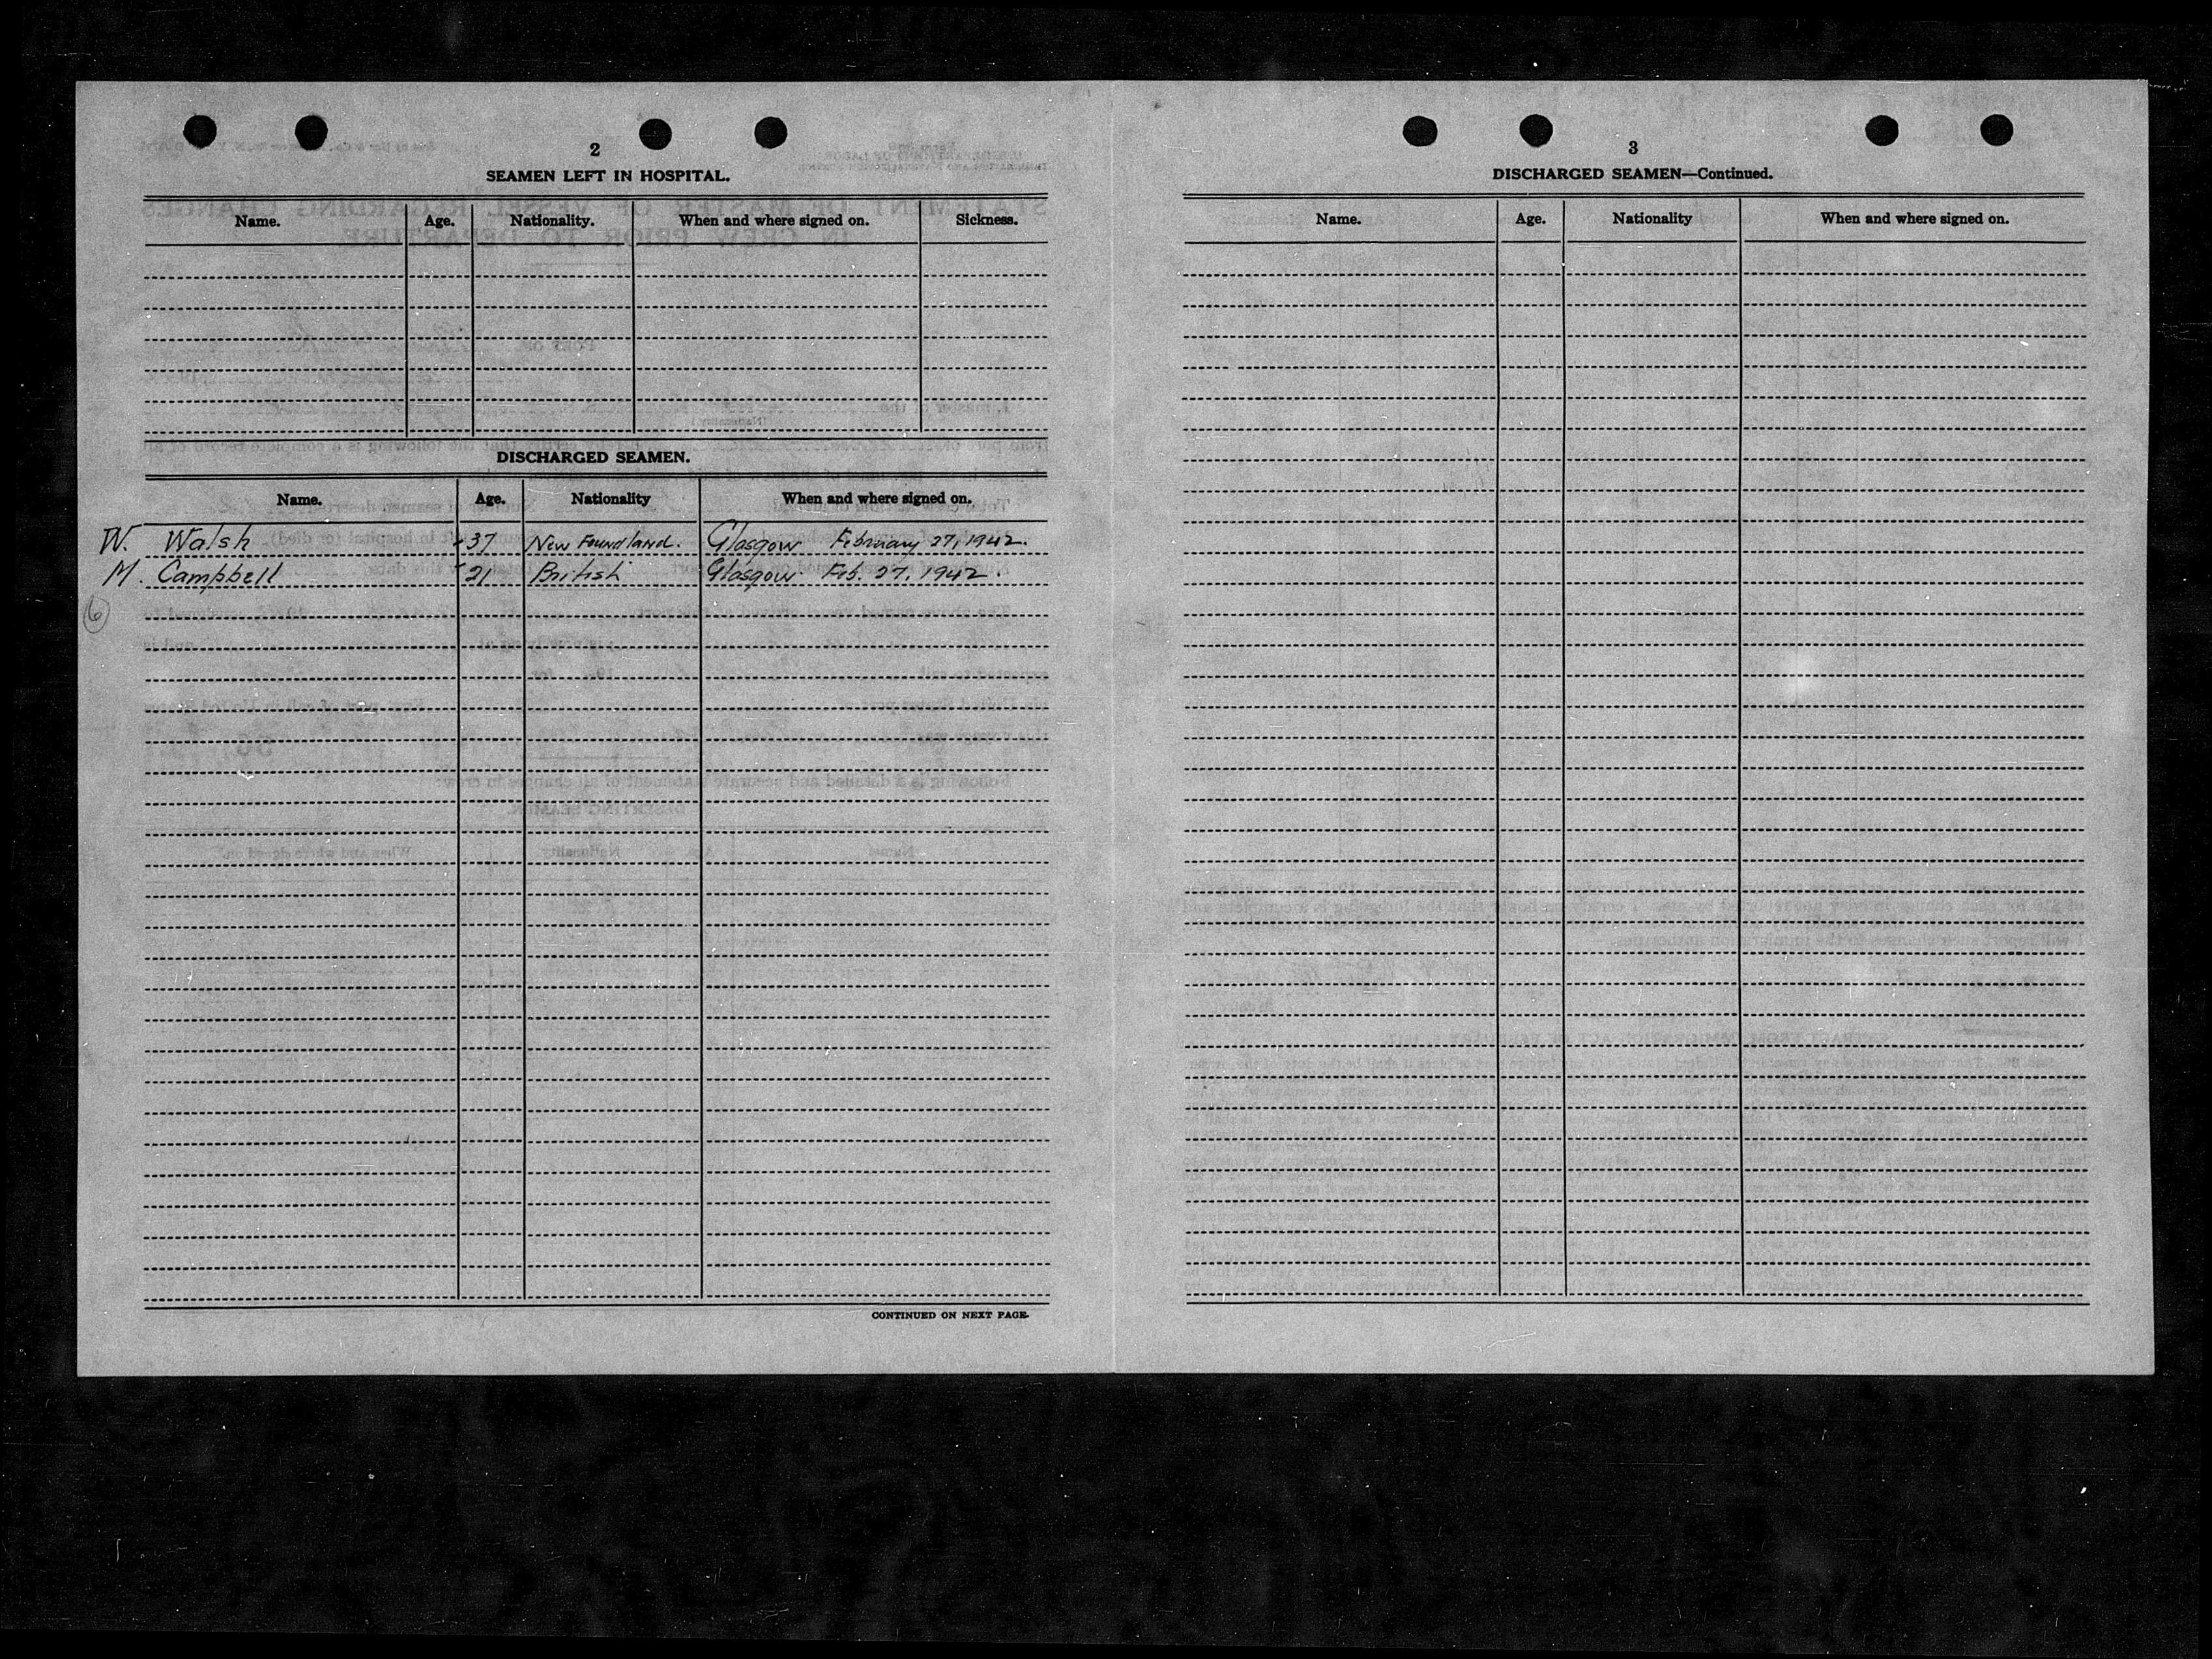 2
SEAMEN LEFT IN HOSPITAL.
Name. Age. Nationality. When and where signed on. Sickness.
DISCHARGED SEAMEN.
Name. Age. Nationality When and where signed on.
W. Walsh 37 New Foundland. Glasgow February 27, 1942.
M. Campbell 21 British Glasgow. Feb. 27. 1942.
6
CONTINUED ON NEXT PAGE.
3
DISCHARGED SEAMEN—Continued.
Name. Age. Nationality When and where signed on.